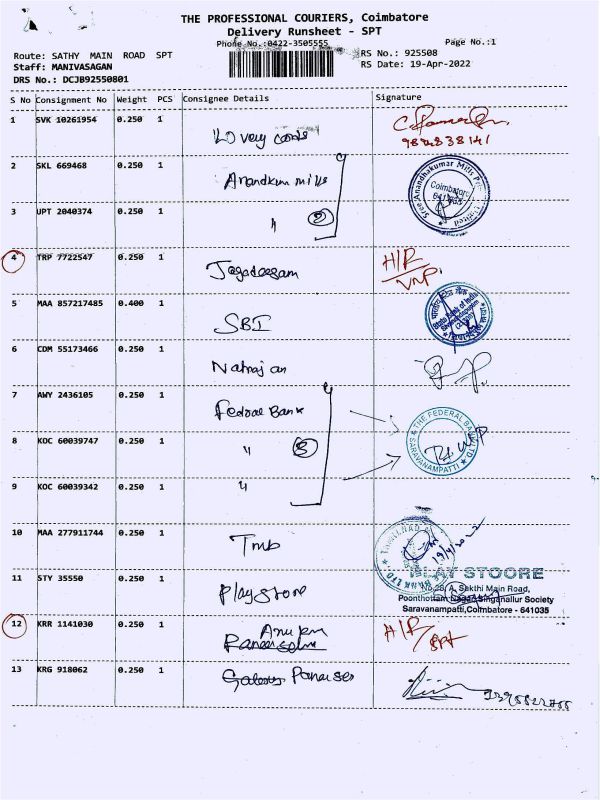 THE PROFESSIONAL COURIERS, Coimbatore
Delivery Runsheet - SPT
Phone No.:0422-3505555
Page No.:1
Route: SATHY MAIN ROAD SPT
RS No.: 925508
Staff: MANIVASAGAN
RS Date: 19-Apr-2022
DRS No.: DCJB92550801
S No Consignment No Weight PCS Consignee Details Signature
1 SVK 10261954 0.250 1
2 SKL 669468 0.250 1 Anandkum mills
Sree Anandhakumar Mills Coimbatore
3 UPT 2040374 0.250 1 " 2
4 TRP 7722547 0.250 1 Jagadeesam H/R
5 MAA 857217485 0.400 1 SBI
State Bank of India
6 CDM 55173466 0.250 1 Natrajan
7 AWY 2436105 0.250 1 Federal Bank
THE FEDERAL BANK LTD SARAVANAMPATTI
8 KOC 60039747 0.250 1 " 3
9 KOC 60039342 0.250 1 "
10 MAA 277911744 0.250 1 Tmb
11 STY 35550 0.250 1 Playstore
PLAY STOORE
Sakthi Main Road,
Poonthottam Nagar, Singanallur Society
Saravanampatti, Coimbatore - 641035
12 KRR 1141030 0.250 1 H/R SPT
13 KRG 918062 0.250 1